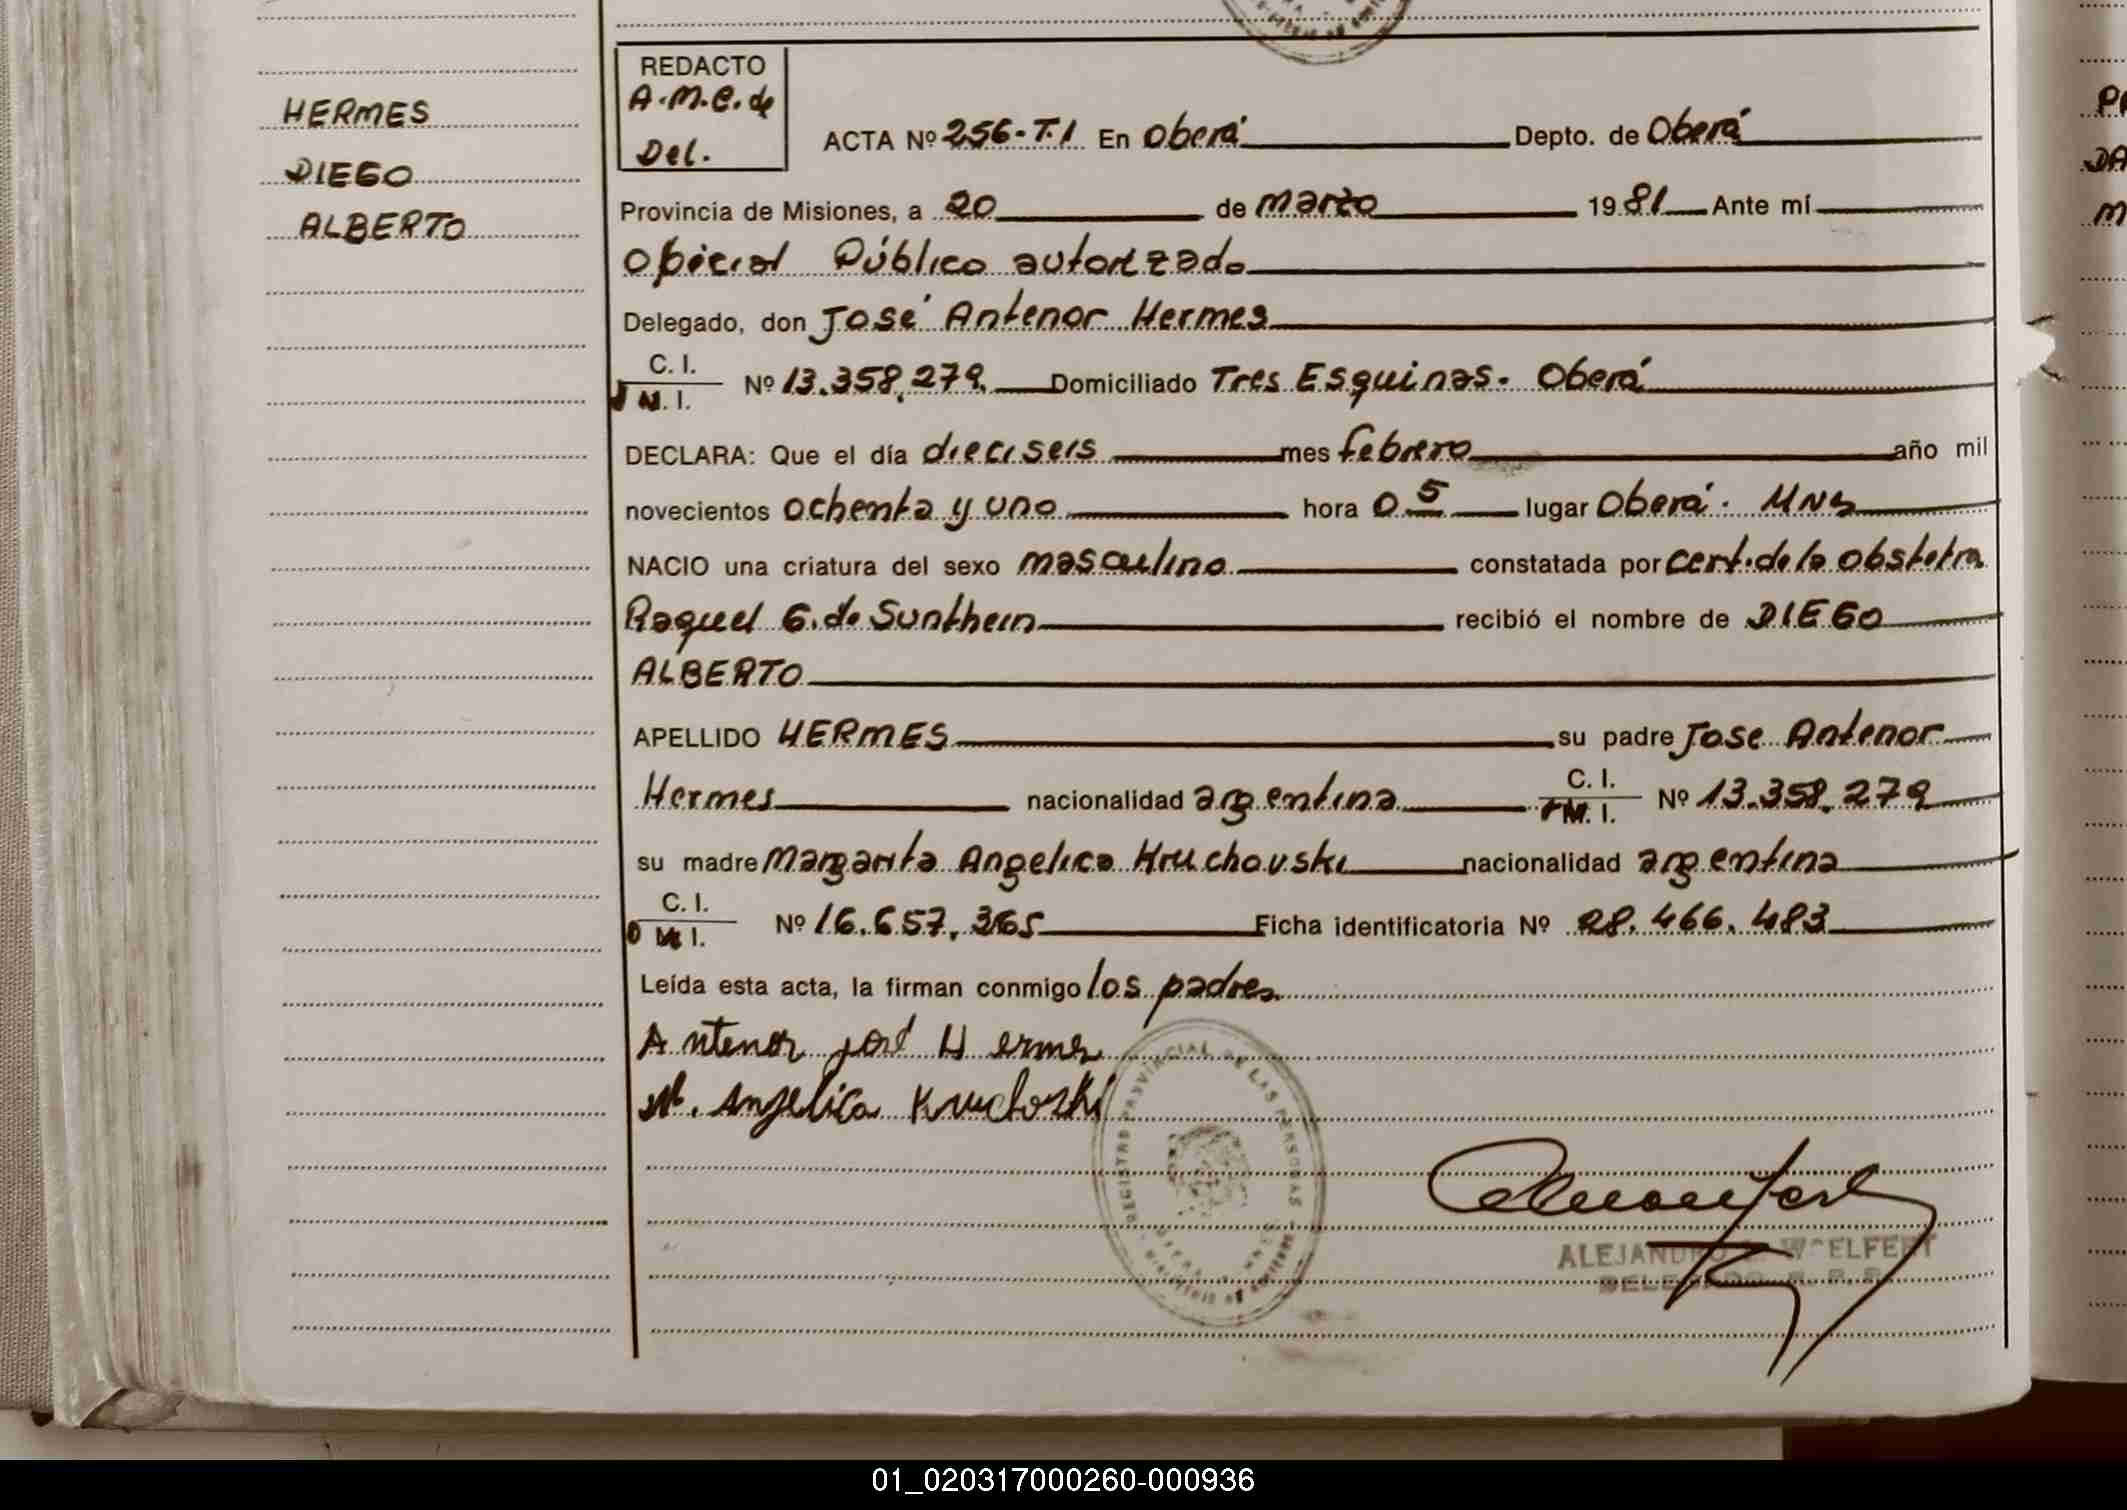 HERMES
DIEGO
ALBERTO
REDACTO
A.M.C. de
Del.
ACTA Nº 256-T.I En Oberá Depto. de Oberá
Provincia de Misiones, a 20 de marzo 1981 Ante mí
Oficial Público autorizado
Delegado, don José Antenor Hermes
C. I.
M. I. Nº 13.358.279 Domiciliado Tres Esquinas. Oberá
DECLARA: Que el día dieciseis mes febrero año mil
novecientos ochenta y uno hora 0 5 lugar Oberá. MNS
NACIO una criatura del sexo masculino constatada por cert. de la obstetra
Raquel G. de Sunthein recibió el nombre de DIEGO
ALBERTO
APELLIDO HERMES su padre Jose Antenor
Hermes nacionalidad argentina C. I.
M. I. Nº 13.358.279
su madre Margarita Angelica Kruchovski nacionalidad argentina
C. I.
M. I. Nº 16.657.365 Ficha identificatoria Nº 28.466.483
Leída esta acta, la firman conmigo los padres
Antenor José Hermes
M. Angelica Kruchoski
REGISTRO PROVINCIAL DE LAS PERSONAS
ALEJANDRO WOELFERT
DELEGADO R. P. P.
01_020317000260-000936